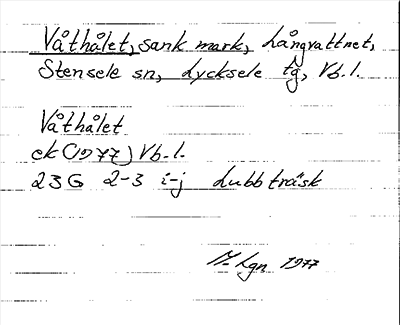 Våthålet, sank mark, Långvattnet,
Stensele sn, Lycksele tg, Vb.l.
Våthålet
ek (1977) Vb.l.
23G 2-3 i-j Lubbträsk
1977